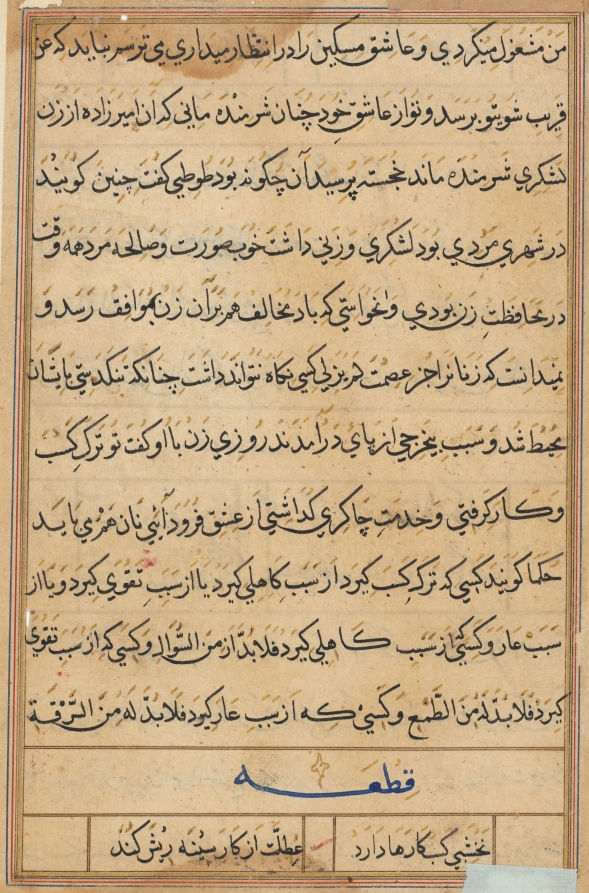 من مشغول میکردی و عاشق مسکین را در انتظار میداری می ترسم نباید که عن
قریب شوی تو برسد و تو از عاشق خود چنان شرمنده مانی که آن امیرزاده از زن
لشکری شرمنده ماند خجسته پرسید آن چگونه بود طوطی گفت چنین گویند
در شهری مردی بود لشکری و زنی داشت خوب صورت و صالحه مرد همه وقت
در محافظت زن بودی و نخواستی که باد مخالف هم بر آن زن موافق رسد و
نمیدانست که زنانرا جز عصمت لم یزلی کسی نگاه نتواند داشت چنانکه تنگدستی بایشان
محیط شد و سبب بیخرجی از پای درآمدند روزی زن با او گفت تو ترک کسب
و کار گرفتی و خدمت چاکری گذاشتی از عشق فرود آئی نان هم می باید
حکما گویند کسی که ترک کسب گیرد از سبب کاهلی گیرد یا از سبب تقوی گیرد و یا از
سبب عار و کسی از سبب کاهلی گیرد فلا بدّ از من السّوال و کسی که از سبب تقوی
گیرد فلا بدّ له من الطّمع و کسی که از سبب عار گیرد فلا بدّ له من السّرقة
قطعه
نخشبی کسب کارها دارد عطلت از کار سینه ریش کند